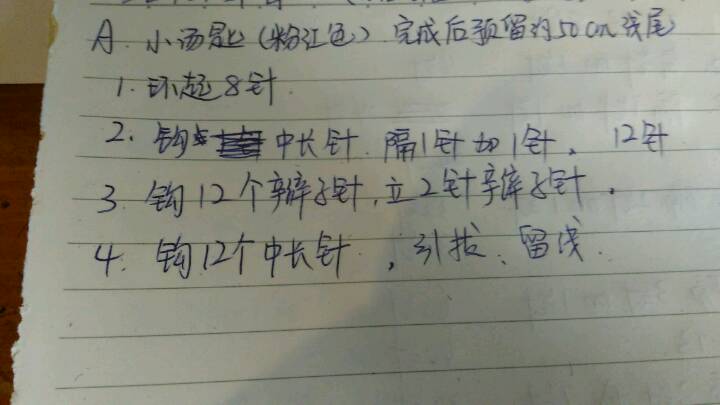 A. 小汤匙（粉红色）完成后预留约50cm线尾
1. 环起8针.
2. 钩 中长针. 隔1针加1针, 12针
3. 钩12个辫子针, 立2针辫子针.
4. 钩12个中长针, 引拔、留线.